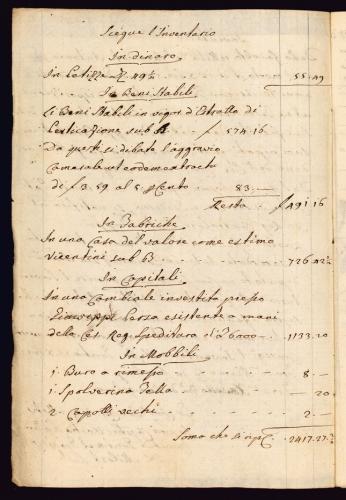 Siegue l'Inventario
In dinaro
In Petizze N. 49½ - - - - 55. 49
In Beni Stabili
Li Beni Stabili in vigor d'Estratto di
Certicazione sub A f 574. 16
Da questi si dibate l'aggravio
Camarale ut eodem extractu
di f 3. 59 al 5. p Cento 83. —
Resta f 491. 16
In Fabriche
In una Casa del valore come estimo
Vicentini sub B - - - 726. 42½
In Capitali
In una Cambiale investita presso
Giuseppe esistente a mani
della Ces. Reg. Speditura d' 6000 - - 1133. 20
In Mobbili
1. Buro a rimesso - - - - 8. —
1. Spolverina Tella - - - - — 20
2. Capotti vechi - - - - 2. —
Soma che si rip. 2417. 27½